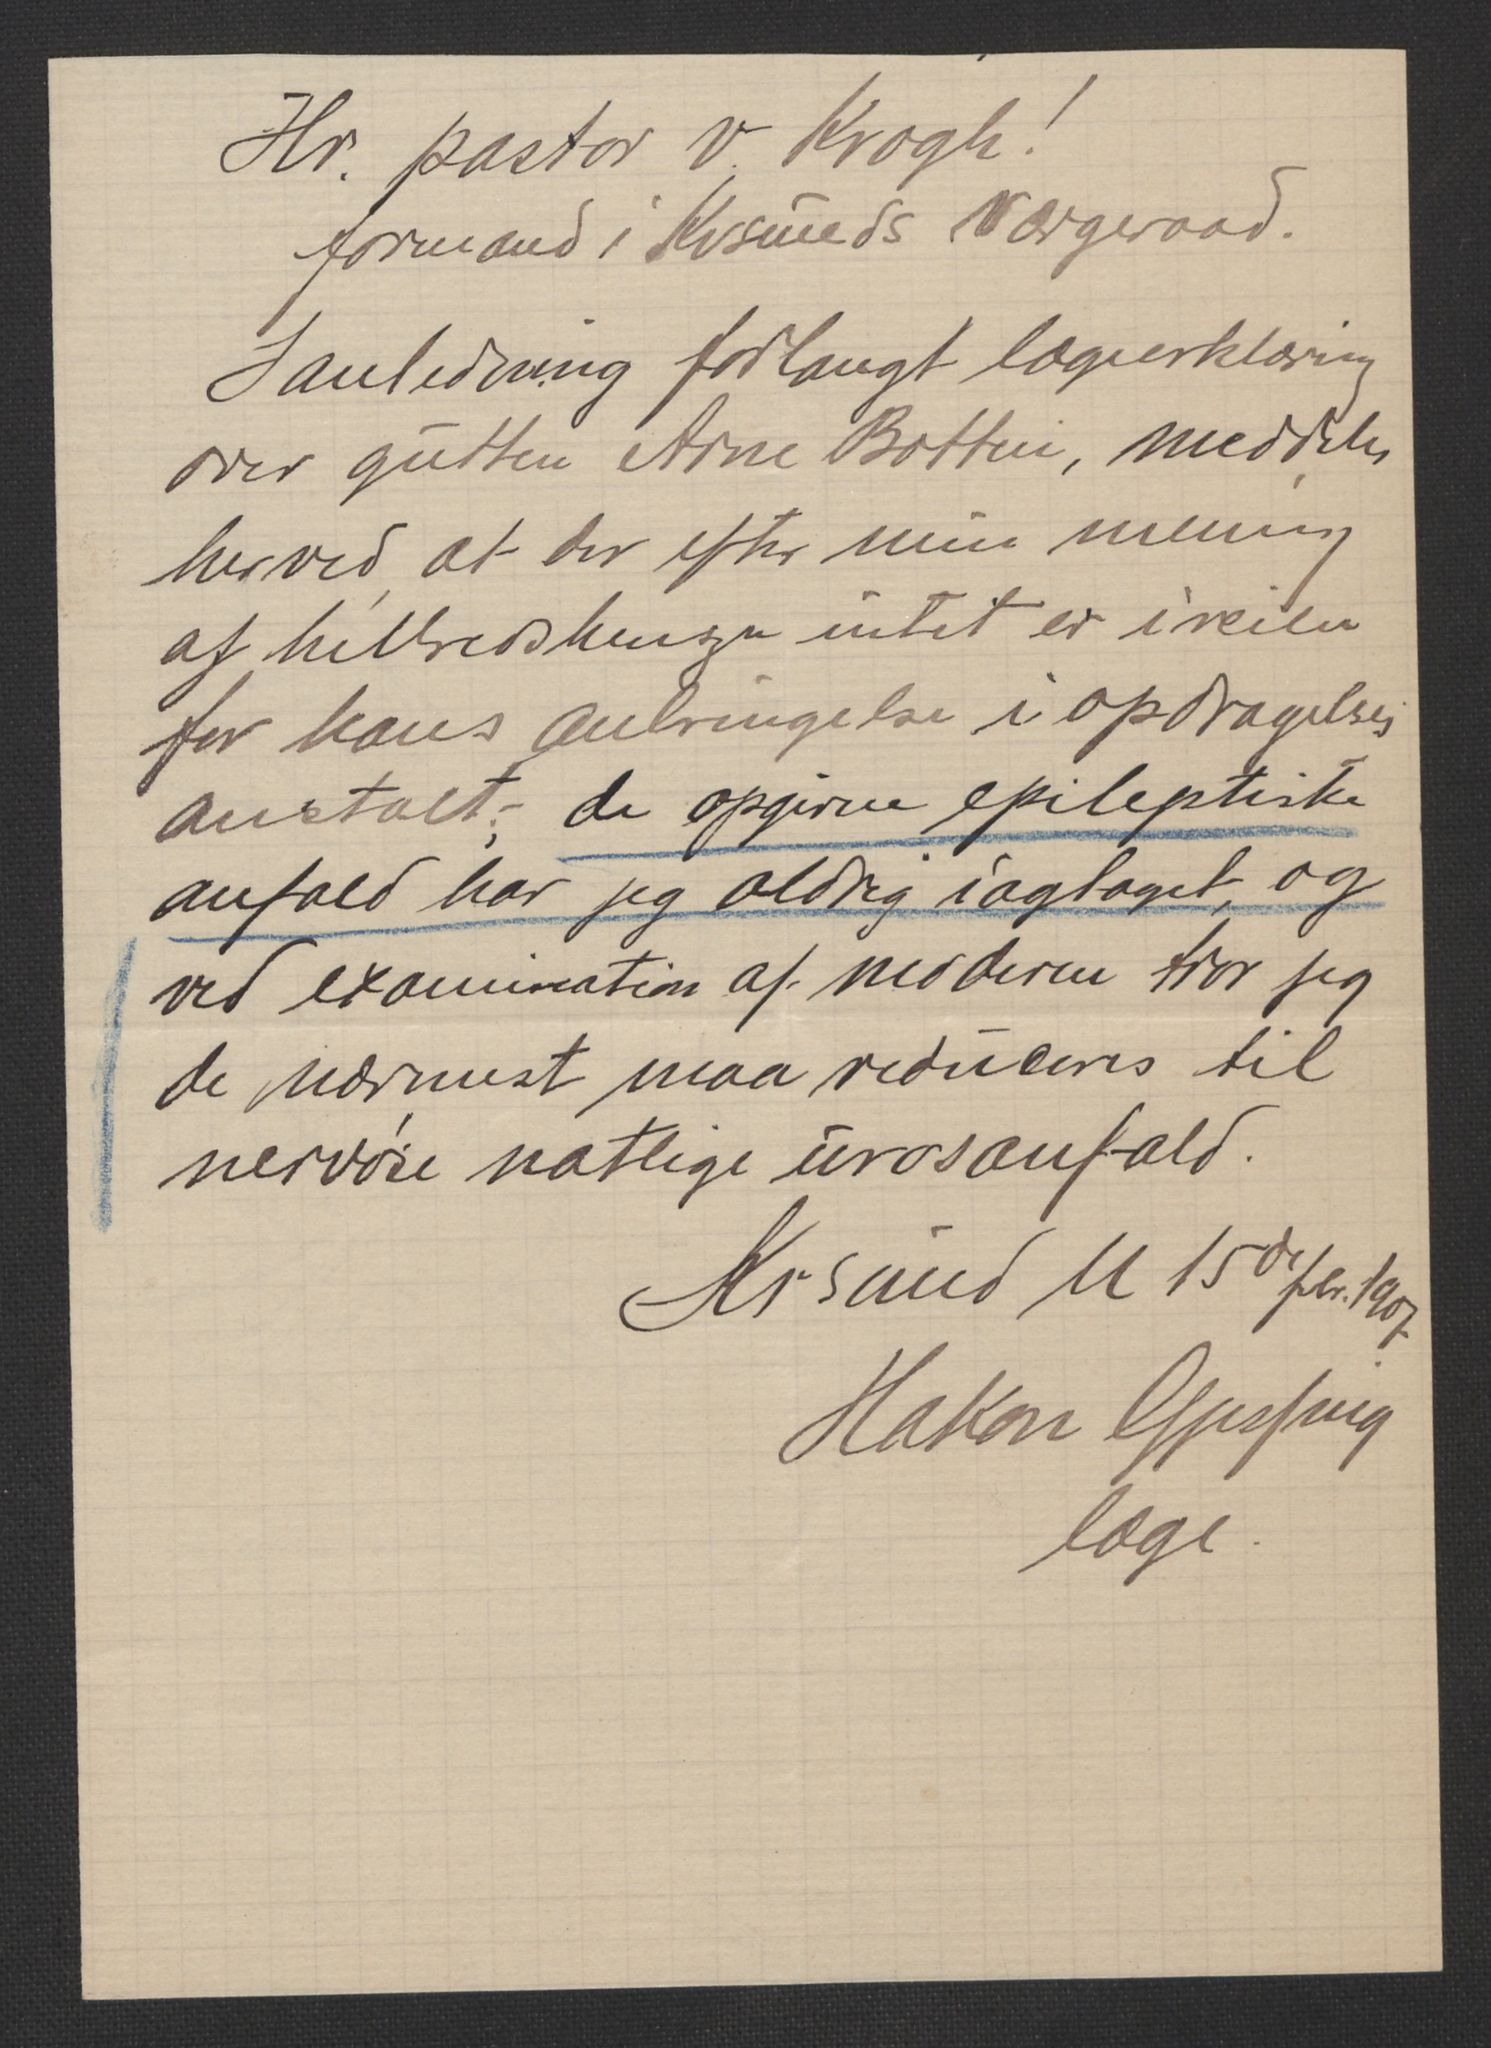 Hr. pastor v. Krogh!
formand i Krsunds Værgeraad.
I anledning forlangt lægeerklæring
over gutten Arne Botten, meddeles
herved at der efter min mening
af helbredshensyn intet er iveien
for hans anbringelse i opdragelses
anstalt; de opgivne epileptiske
anfald har jeg aldrig iagtaget, og
ved examination af moderen tror jeg
de nærmest maa reduceres til
nervøse natlige urosanfald.
Krsund N 15de febr. 1907
Hakon
læge.